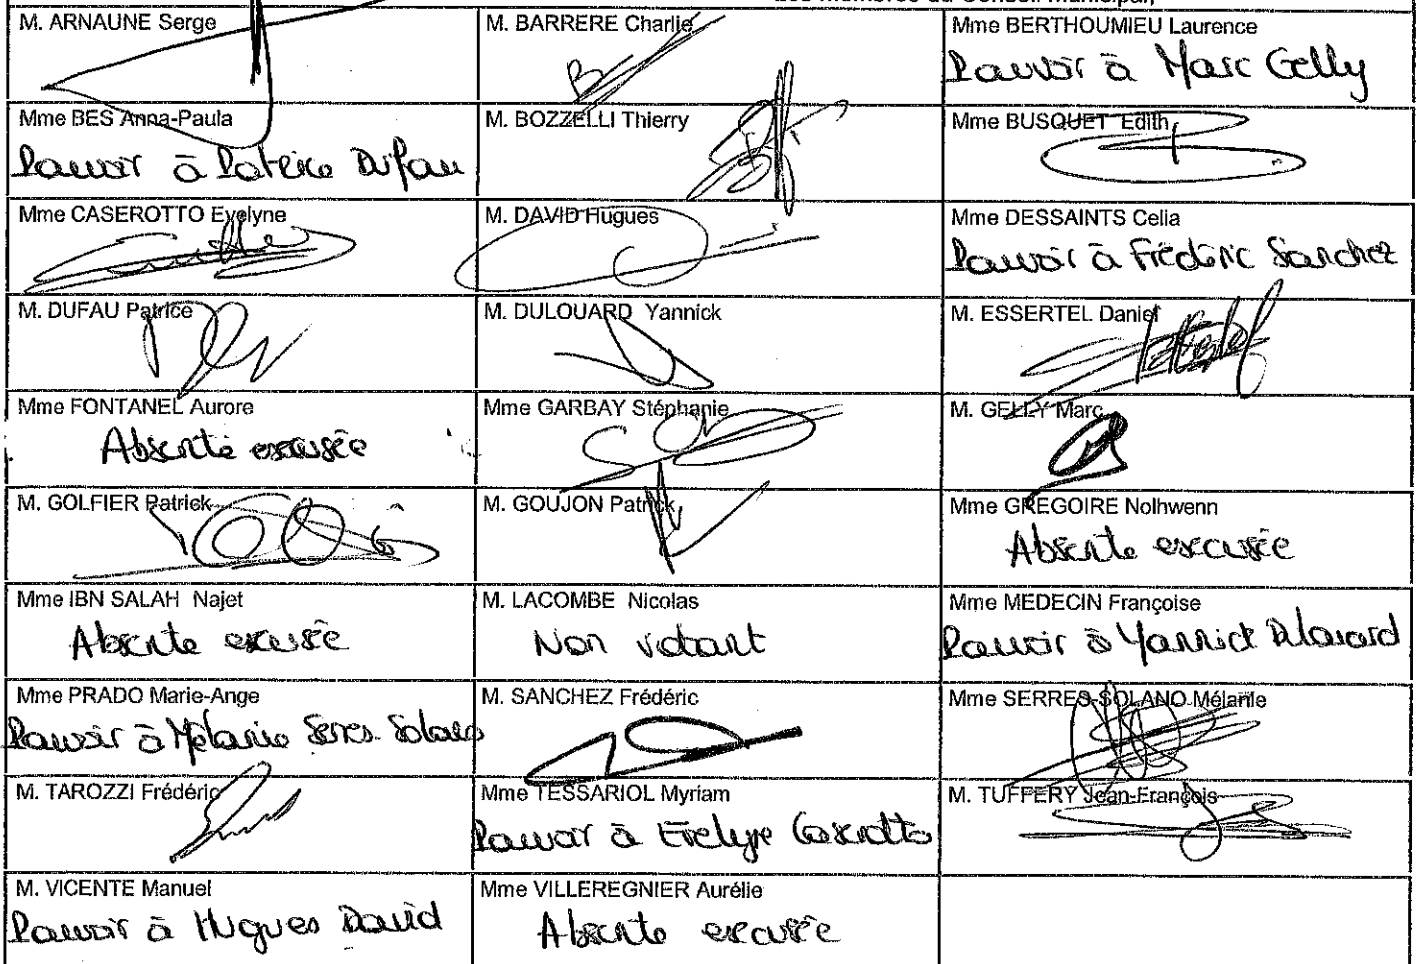 Les Membres du Conseil Municipal,
M. ARNAUNE Serge
M. BARRERE Charlie
Mme BERTHOUMIEU Laurence
Pouvoir à Marc Gelly
Mme BES Anna-Paula
Pouvoir à Patrice Dufau
M. BOZZELLI Thierry
Mme BUSQUET Edith
Mme CASEROTTO Evelyne
M. DAVID Hugues
Mme DESSAINTS Celia
Pouvoir à Frédéric Sanchez
M. DUFAU Patrice
M. DULOUARD Yannick
M. ESSERTEL Daniel
Mme FONTANEL Aurore
Absente excusée
Mme GARBAY Stéphanie
M. GELLY Marc
M. GOLFIER Patrick
M. GOUJON Patrick
Mme GREGOIRE Nolhwenn
Absente excusée
Mme IBN SALAH Najet
Absente excusée
M. LACOMBE Nicolas
Non votant
Mme MEDECIN Françoise
Pouvoir à Yannick Dulouard
Mme PRADO Marie-Ange
Pouvoir à Mélanie Serres-Solano
M. SANCHEZ Frédéric
Mme SERRES-SOLANO Mélanie
M. TAROZZI Frédéric
Mme TESSARIOL Myriam
Pouvoir à Evelyne Caserotto
M. TUFFERY Jean-François
M. VICENTE Manuel
Pouvoir à Hugues David
Mme VILLEREGNIER Aurélie
Absente excusée